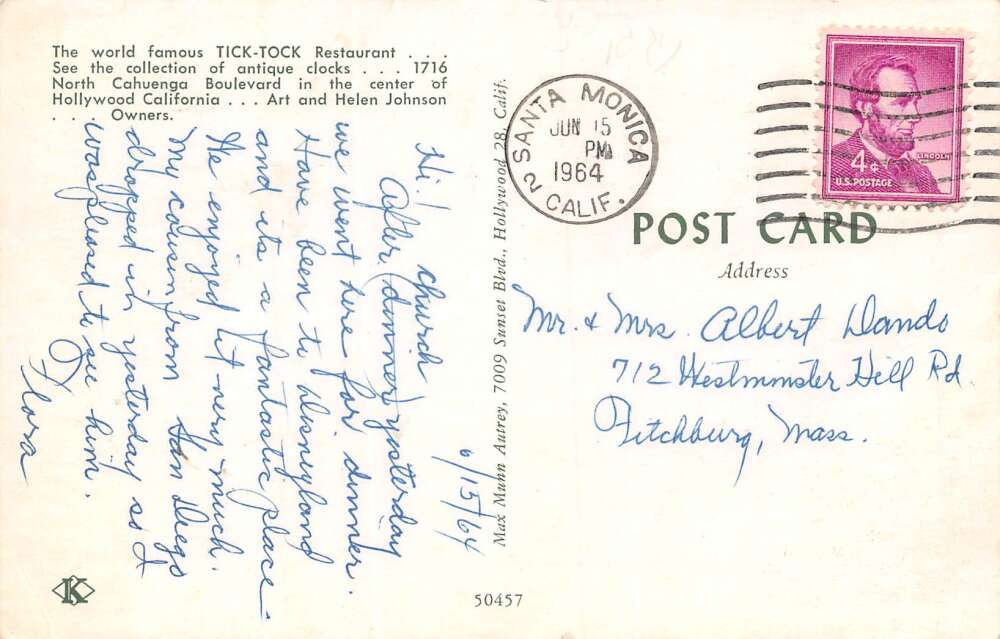 The world famous TICK-TOCK Restaurant . . .
See the collection of antique clocks . . . 1716
North Cahuenga Boulevard in the center of
Hollywood California . . . Art and Helen Johnson
. . . Owners.
6/15/64
Hi!
church
After (dinner) yesterday
we went here for dinner.
Have been to Disneyland
and its a fantastic place -
We enjoyed it very much.
My cousin from San Diego
dropped in yesterday so I
was pleased to see him.
Flora
K
Max Munn Autrey, 7009 Sunset Blvd., Hollywood 28, Calif.
50457
SANTA MONICA
2 CALIF.
JUN 15
PM
1964
LINCOLN
4¢
U.S. POSTAGE
POST CARD
Address
Mr. & Mrs. Albert Dando
712 Westminster Hill Rd.
Fitchburg, Mass.